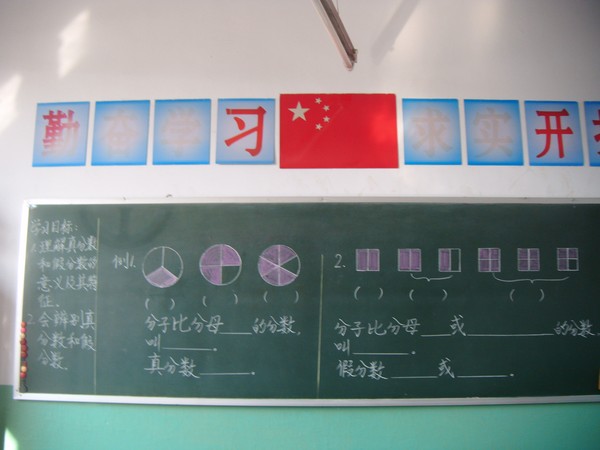 勤奋学习 求实开
学习目标:
1.理解真分数
和假分数的
意义及其特
征.
2.会辨别真
分数和假
分数.
例1.
( ) ( ) ( )
分子比分母___的分数,
叫______。
真分数______。
2.
( ) ( ) ( )
分子比分母___或________的分数
叫______。
假分数_____或_____。